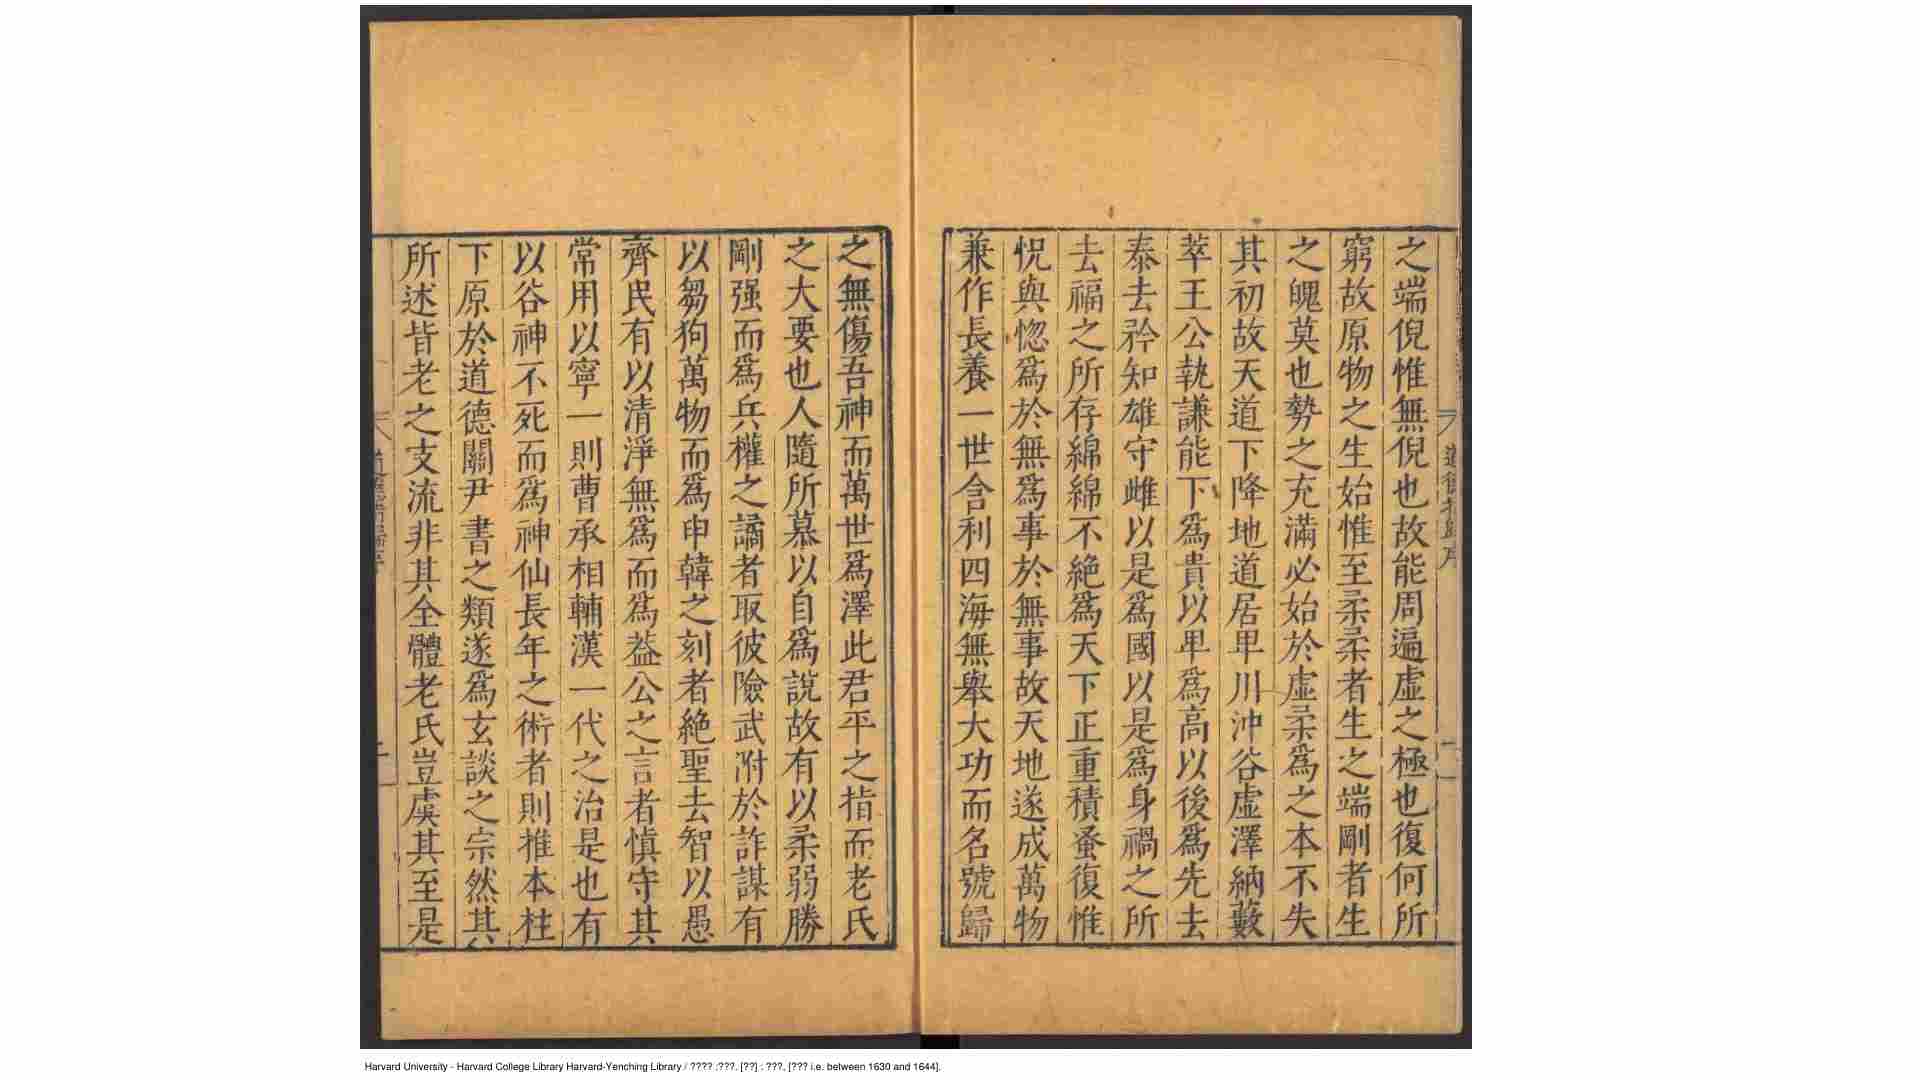 之端倪惟無倪也故能周遍虛之極也復何所
窮故原物之生始惟至柔柔者生之端剛者生
之魄莫也勢之充滿必始於虛柔爲之本不失
其初故天道下降地道居甲川沖谷虛澤納藪
萃王公執謙能下爲貴以甲爲高以後爲先去
泰去矜知雄守雌以是爲國以是爲身禍之所
去福之所存綿綿不絶爲天下正重積蚤復惟
怳與惚爲於無爲事於無事故天地遂成萬物
兼作長養一世含利四海無舉大功而名號歸
之無傷吾神而萬世爲澤此君平之指而老氏
之大要也人隨所慕以自爲說故有以柔弱勝
剛强而爲兵權之譎者取彼險武附於詐謀有
以芻狗萬物而爲申韓之刻者絶聖去智以愚
齊民有以清淨無爲而爲葢公之言者慎守其
常用以寧一則曹承相輔漢一代之治是也有
以谷神不死而爲神仙長年之術者則推本柱
下原於道德關尹書之類遂爲玄談之宗然其
所述皆老之支流非其全體老氏豈虞其至是
Harvard University - Harvard College Library Harvard-Yenching Library / ???? :???. [??] : ???, [??? i.e. between 1630 and 1644].